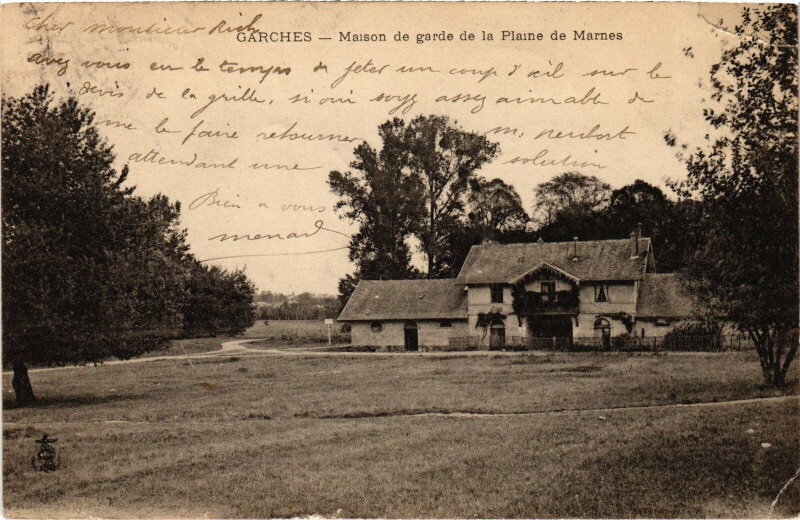 Cher monsieur Rich
GARCHES — Maison de garde de la Plaine de Marnes
avez vous eu le temps de jeter un coup d'œil sur le
devis de la grille, si oui soyez assez aimable de
me le faire retourner m. neubort
attendant une solution
Bien a vous
menard